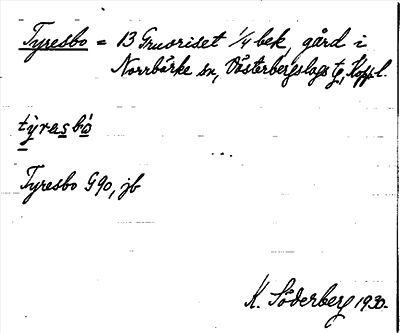 Tyresbo = 13 Gruvriset 1/4 bek, gård i
Norrbärke sn, Västerbergslags tg, Koppl.
tỳrasbò
Tyresbo G90, jb
K. Söderberg 1930.